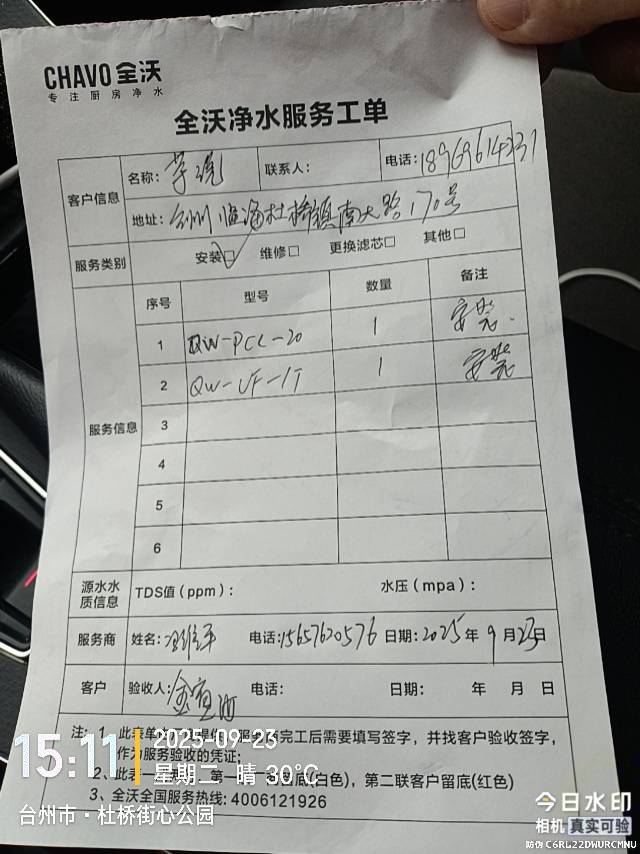 CHAVO 全沃
专注厨房净水
全沃净水服务工单
客户信息 名称： 联系人： 电话：
地址：台州临海杜桥镇南大路170号
服务类别 安装☑ 维修□ 更换滤芯□ 其他□
服务信息 序号 型号 数量 备注
1 QW-PCL-20 1 安装.
2 QW-UF-1T 1 安装
3
4
5
6
源水水质信息 TDS值（ppm）： 水压（mpa）：
服务商 姓名： 电话：15657620576 日期：2025年9月23日
客户 验收人： 电话： 日期： 年 月 日
注：1、此 完工后需要填写签字，并找客户验收签字，
作为服务验收的凭证；
2、此 一 第一 (白色)，第二联客户留底(红色)
3、全沃全国服务热线：4006121926
15:11
2025-09-23
星期二 晴 30℃
台州市·杜桥街心公园
今日水印
相机 真实可验
防伪 C6RL22DWURCMNU